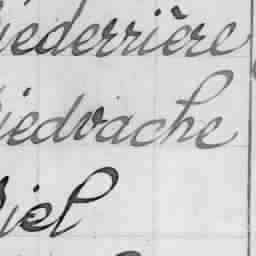 iederrière
iedvache
iel